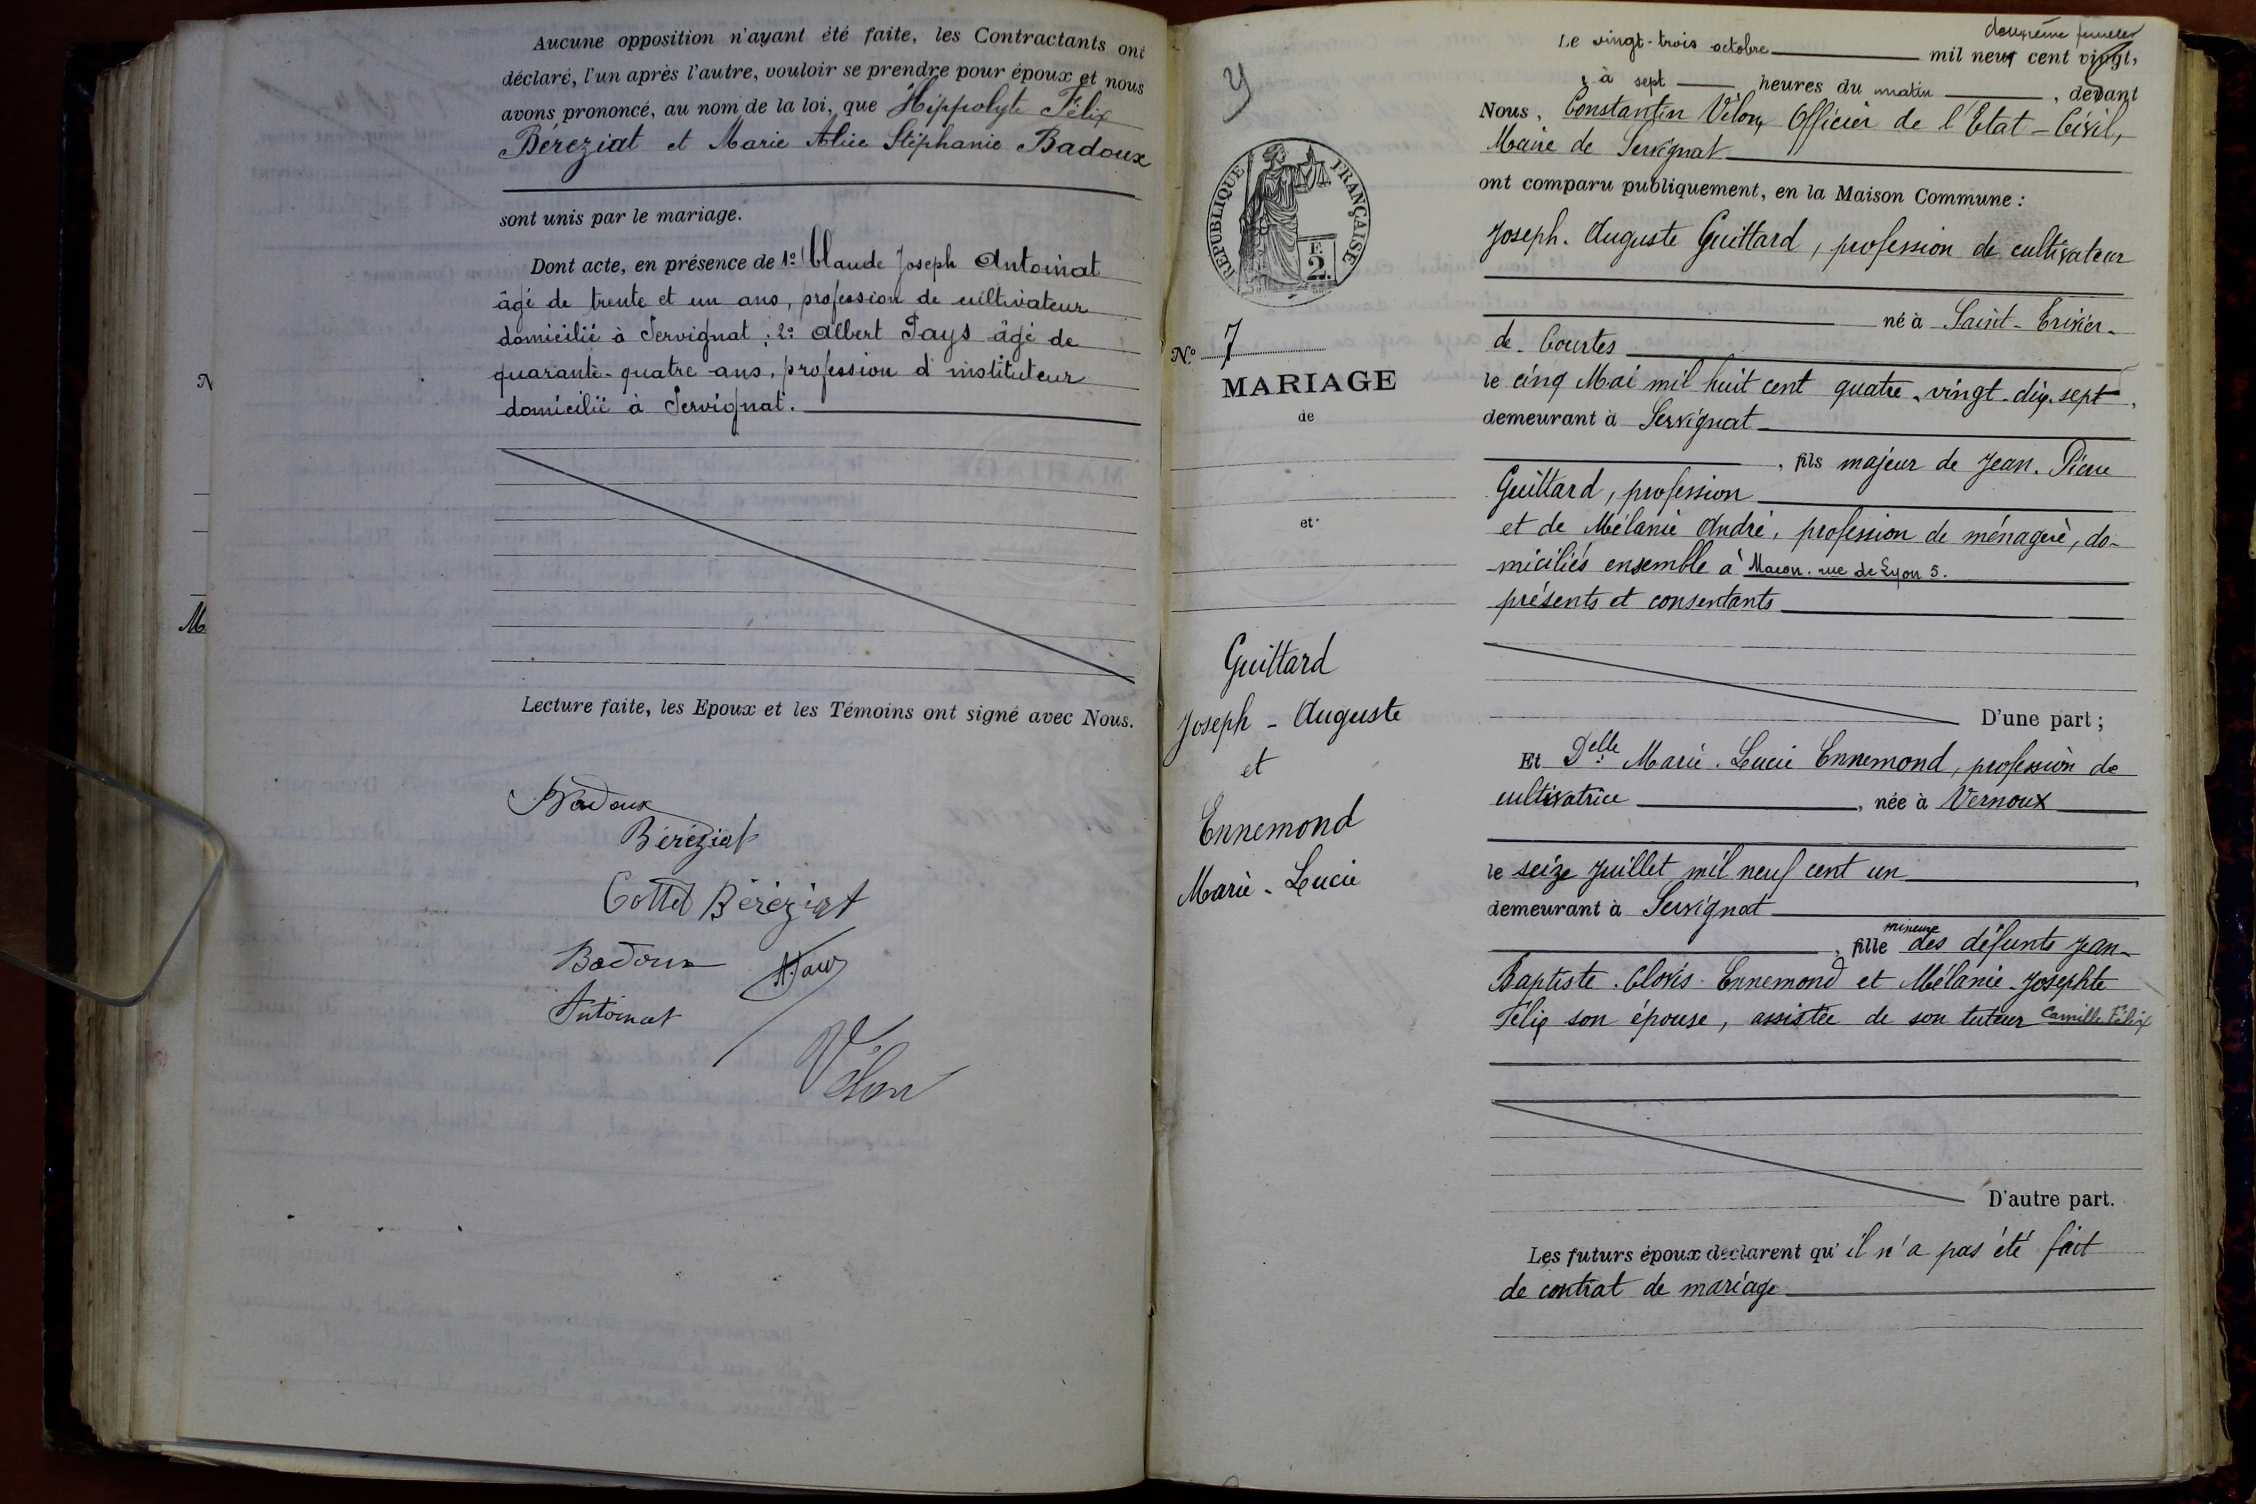 Aucune opposition n'ayant été faite, les Contractants ont
déclaré, l'un après l'autre, vouloir se prendre pour époux et nous
avons prononcé, au nom de la loi, que Hippolyte Félix
Béreziat et Marie Alice Stéphanie Badoux
sont unis par le mariage.
Dont acte, en présence de 1º Claude Joseph Antoinat
âgé de trente et un ans, profession de cultivateur
domicilié à Servignat ; 2º Albert Pays âgé de
quarante-quatre ans, profession d'instituteur
domicilié à Servignat.
Lecture faite, les Epoux et les Témoins ont signé avec Nous.
Badoux
Béréziat
Cottet Béréziat
Badoux
Antoinat
Vélon
N
M
REPUBLIQUE FRANÇAISE
E
2
Nº 7
MARIAGE
de
et
Guittard
Joseph - Auguste
et
Ennemond
Marie - Lucie
deuxième
Le vingt-trois octobre mil neuf cent vingt,
à sept heures du matin, devant
Nous, Constantin Vélon, Officier de l'Etat-Civil,
Maire de Servignat
ont comparu publiquement, en la Maison Commune :
Joseph-Auguste Guittard, profession de cultivateur
né à Saint-Trivier-
de-Courtes
le cinq Mai mil huit cent quatre-vingt-dix-sept,
demeurant à Servignat
, fils majeur de Jean-Pierre
Guittard, profession
et de Mélanie André, profession de ménagère, do-
miciliés ensemble à Macon. rue de Lyon 5.
présents et consentants
D'une part ;
Et Delle Marie-Lucie Ennemond, profession de
cultivatrice, née à Vernoux
le seize Juillet mil neuf cent un,
demeurant à Servignat
mineure
, fille des défunts Jean-
Baptiste-Clovis Ennemond et Mélanie-Josephte
Félix son épouse, assistée de son tuteur Camille Félix
D'autre part.
Les futurs époux déclarent qu'il n'a pas été fait
de contrat de mariage